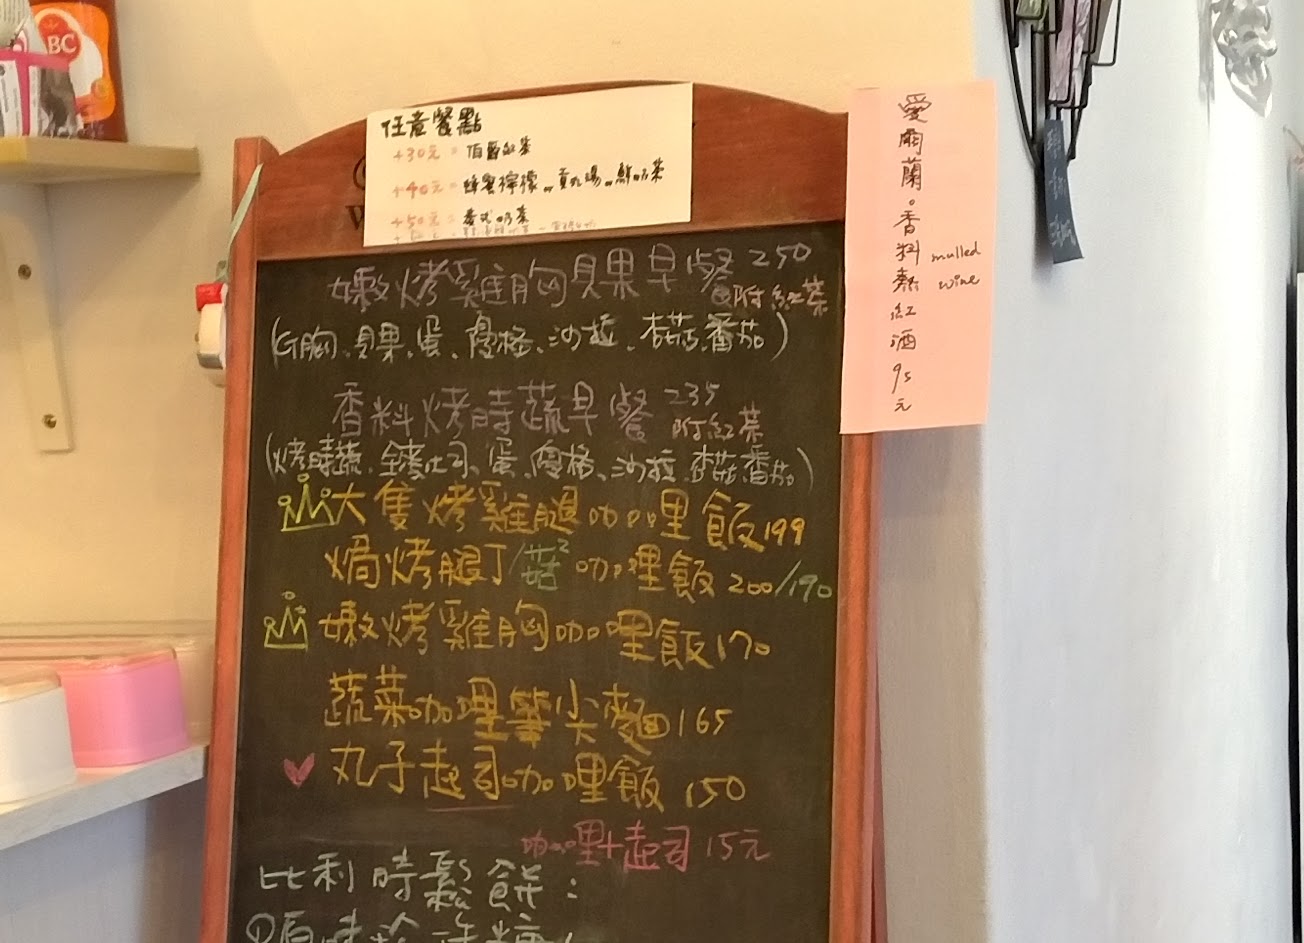 BC
任意餐點
+30元 = 伯爵紅茶
+40元 = 蜂蜜檸檬 or 貢丸湯 or 鮮奶茶
+50元 =
W
嫩烤雞胸貝果早餐 250
附紅茶
(G胸、貝果、蛋、優格、沙拉、杏菇、番茄)
香料烤時蔬早餐 235
附紅茶
(烤時蔬、全麥吐司、蛋、優格、沙拉、杏菇、番茄)
大隻烤雞腿咖哩飯 199
焗烤腿丁/菇² 咖哩飯 200/190
嫩烤雞胸咖哩飯 170
蔬菜咖哩筆尖麵 165
丸子起司咖哩飯 150
咖哩+起司 15元
比利時鬆餅:
愛爾蘭。香料熱紅酒 95元
mulled
wine